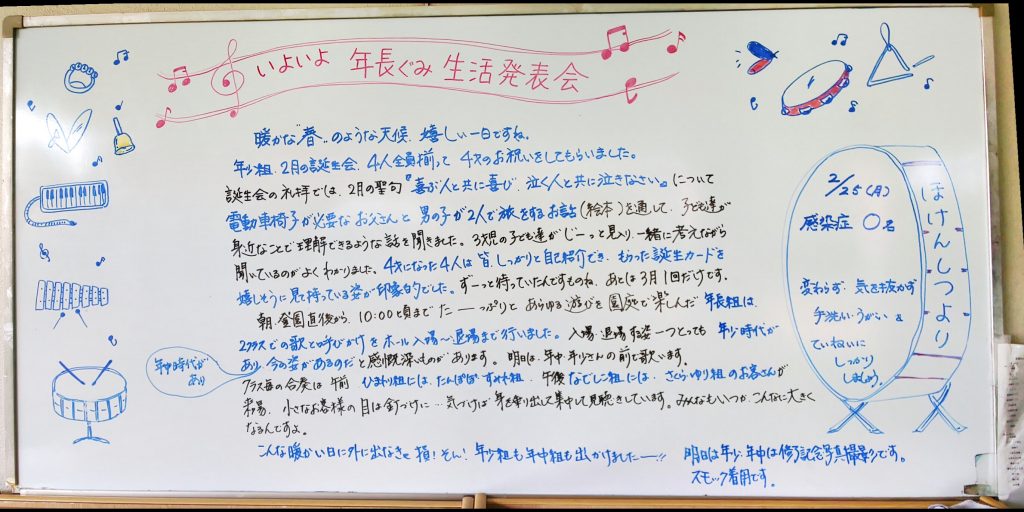 いよいよ 年長ぐみ 生活発表会
暖かな"春"のような天候、嬉しい一日ですね。
年少組、2月の誕生会、4人全員揃って 4才のお祝いをしてもらいました。
誕生会の礼拝では、2月の聖句『喜ぶ人と共に喜び、泣く人と共に泣きなさい。』について
電動車椅子が必要なお父さんと 男の子が2人で旅をするお話(絵本)を通して、子ども達が
身近なことで理解できるような話を聞きました。3才児の子ども達がじーっと見入り、一緒に考えながら
聞いているのがよくわかりました。4才になった4人は皆、しっかりと自己紹介でき、もらった誕生カードを
嬉しそうに見て持っている姿が印象的でした。ずーっと待っていたんですものね、あとは3月1回だけです。
朝、登園直後から、10:00頃まで たーーっぷりと あらゆる遊びを園庭で楽しんだ 年長組は、
2クラスでの歌と呼びかけをホール入場〜退場まで行いました。入場、退場する姿一つとっても 年少時代が
あり、今の姿があるのだと感慨深いものがあります。明日は、年中・年少さんの前で歌います。
年中時代が
あり
クラス毎の合奏は 午前 ひまわり組には、たんぽぽ・すみれ組、午後なでしこ組には、さくら・ゆり組のお客さんが
来場、小さなお客様の目は釘づけに… 気づけば 身を乗り出して集中して見聴きしています。みんなもいつか、こんなに大きく
なるんですよ。
こんな暖かい日に外に出なきゃ 損!そん! 年少組も年中組も出かけましたーー!!
明日は年少・年中は修了記念写真撮影です。
スモック着用です。
ほけんしつより
2/25(月)
感染症 〇名
変わらず 気を抜かず
手洗い・うがい を
ていねいに
しっかり
しましょう。